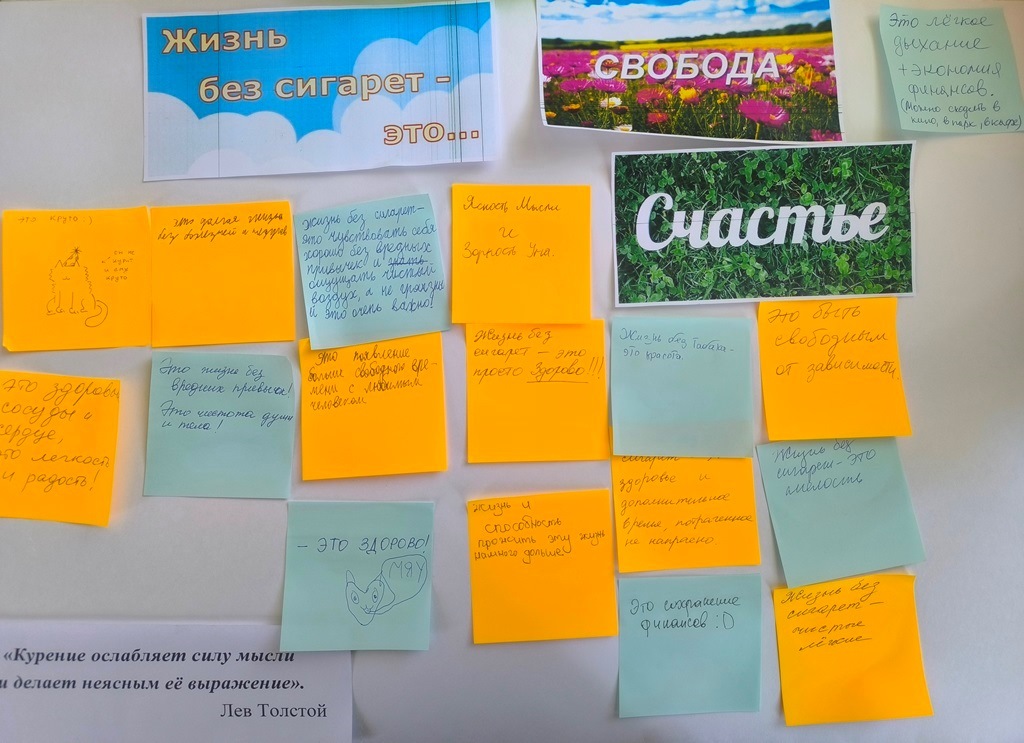 Жизнь
без сигарет -
это...
СВОБОДА
Это лёгкое
дыхание
+ экономия
финансов.
(можно сходить в
кино, в парк, в кафе)
Счастье
это круто :)
ты не
и это
круто
это долгая жизнь
без болезней и недугов
Жизнь без сигарет -
это чувствовать себя
хорошо без вредных
привычек и
ощущать чистый
воздух, а не
и это очень важно!
Ясность Мысли
и
Ума.
Это здоровые
сосуды и
сердце,
это легкость
и радость!
Это жизнь без
вредных привычек!
Это чистота души
и тела!
Это появление
больше свободного вре-
мени с любимым
человеком
Жизнь без
сигарет - это
просто Здорово!!!
Жизнь без Табака -
это красота.
Это быть
свободным
от зависимости.
сигарет
здоровье и
дополнительное
время, потраченное
не напрасно
Жизнь без
сигарет - это
смелость
- ЭТО ЗДОРОВО!
МЯУ
Жизнь и
способность
прожить эту жизнь
намного дольше
Это сохранение
финансов :D
Жизнь без
сигарет -
чистые
лёгкие
«Курение ослабляет силу мысли
и делает неясным её выражение».
Лев Толстой